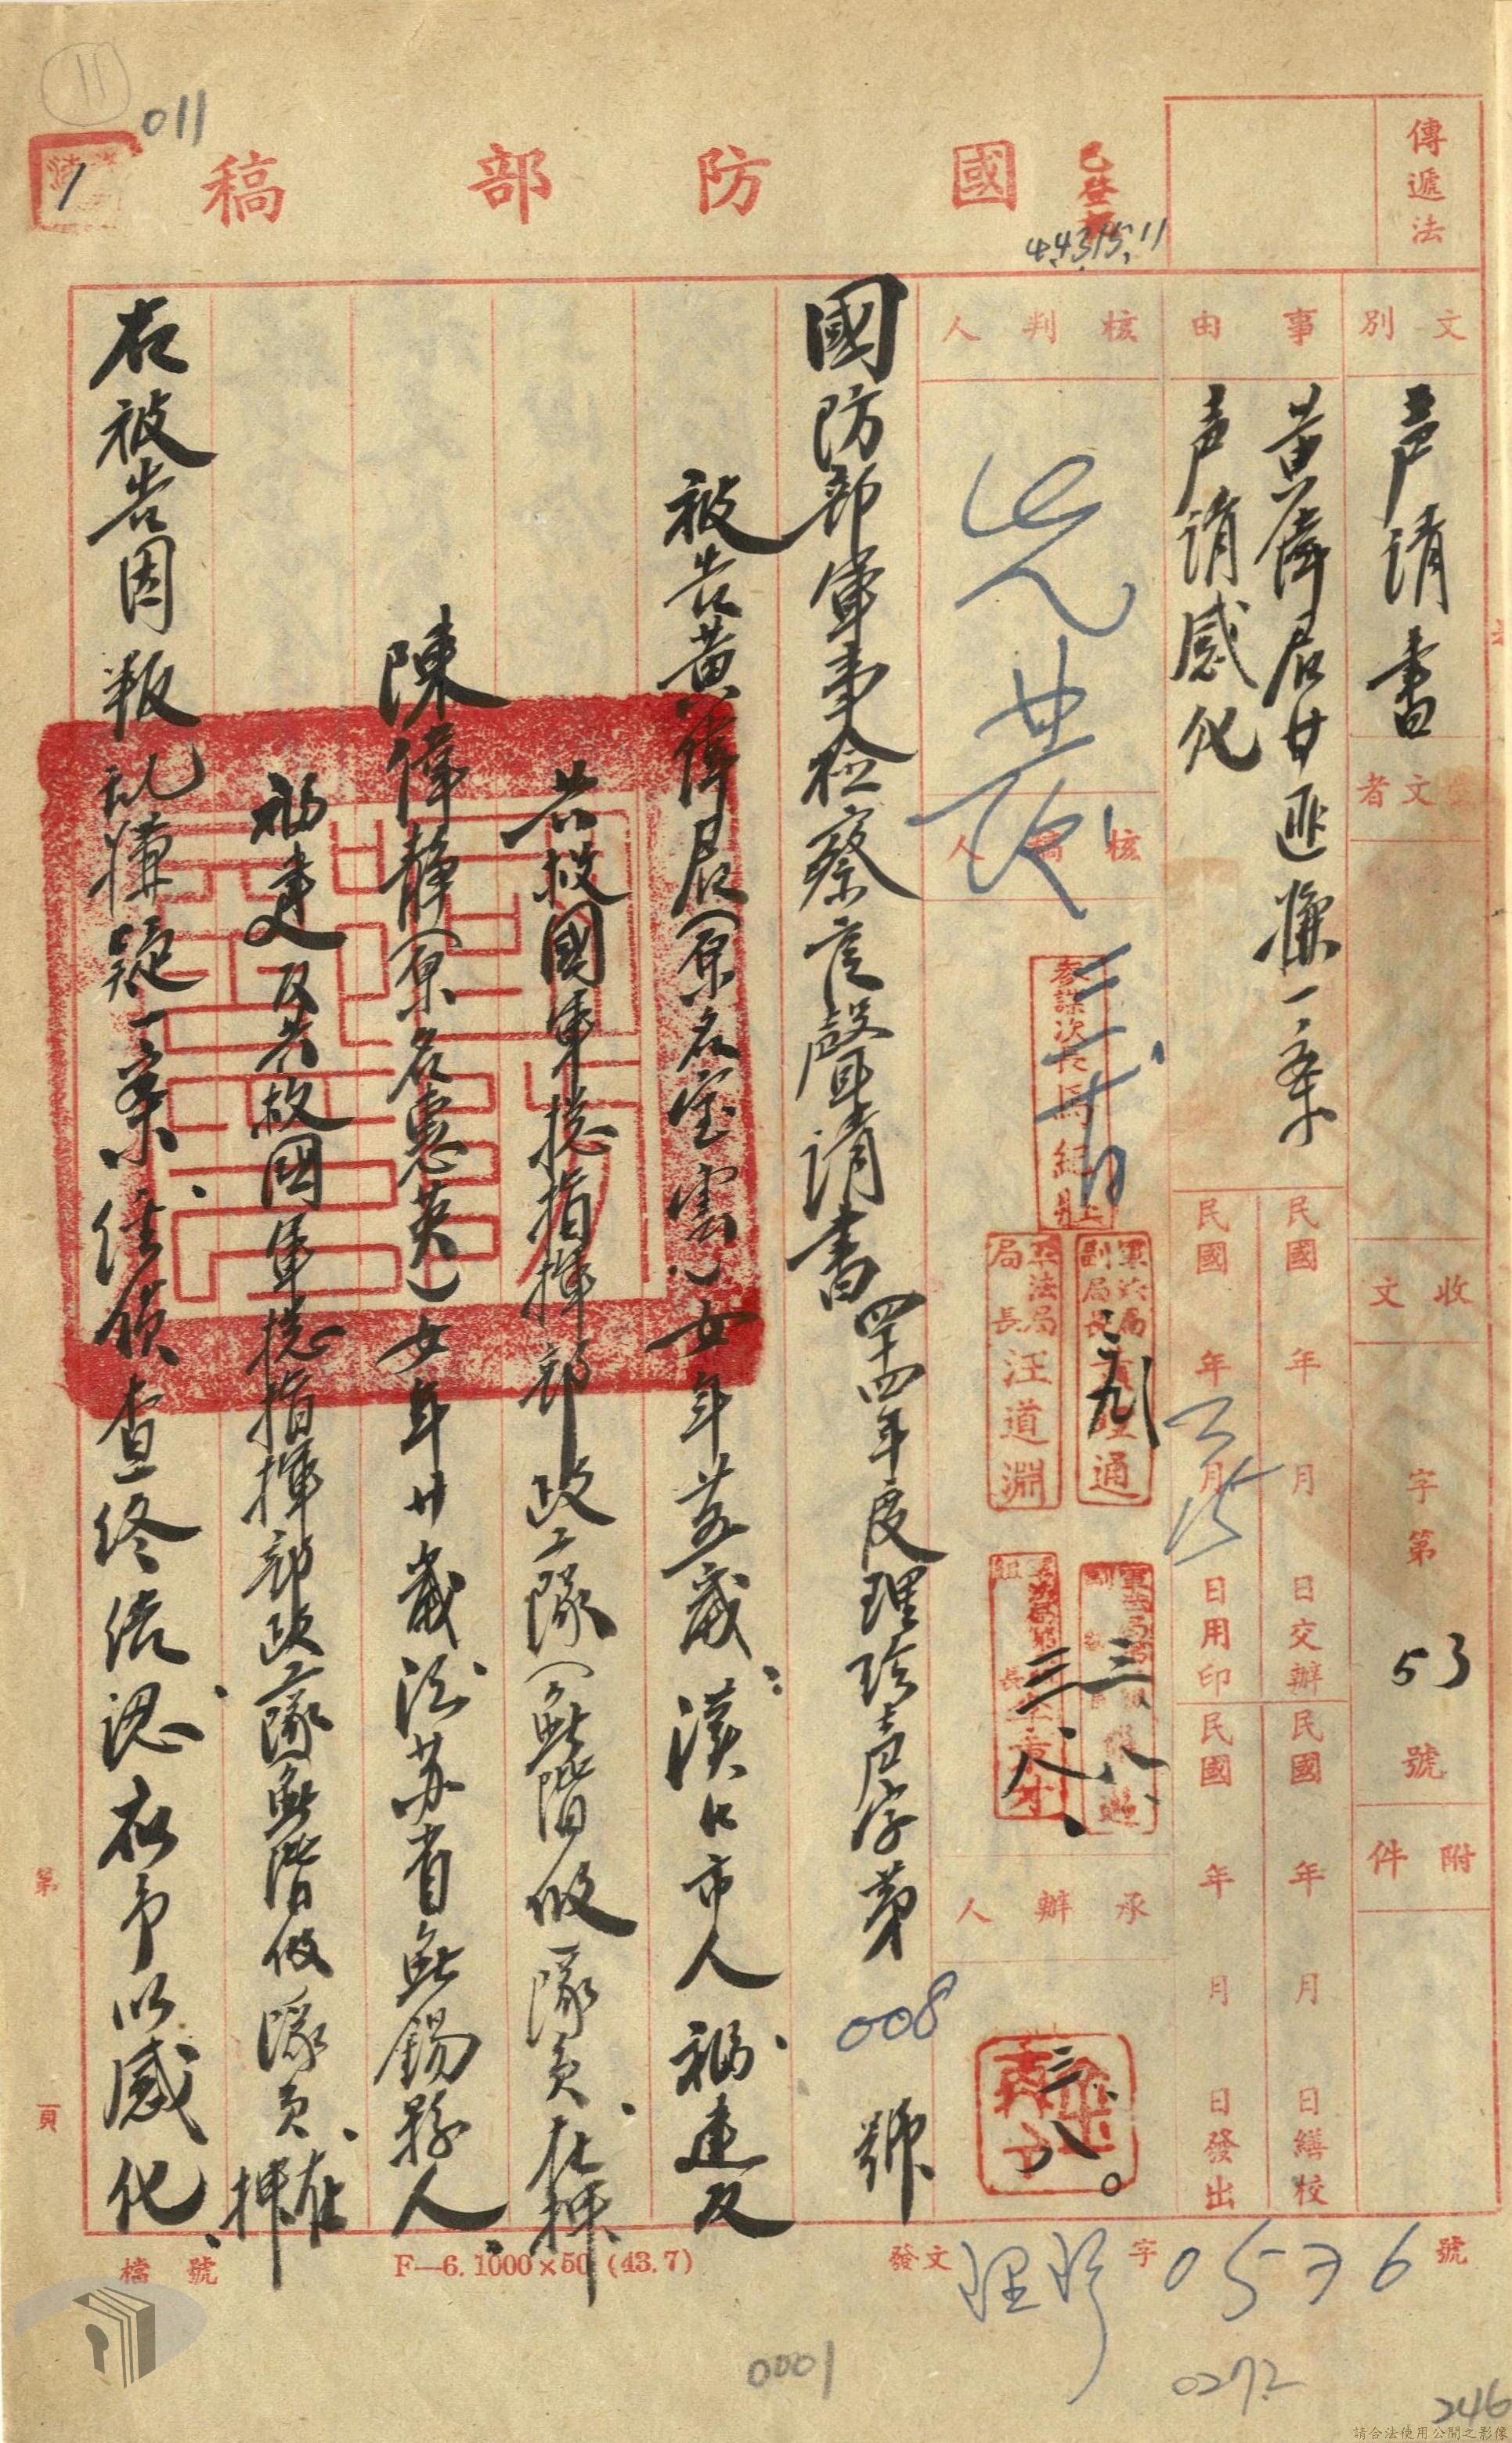 11
011
1
國防部稿
已登
44.3.15.11
傳遞法
文別
声請書
文者
收文
字第
53
號
附件
事由
黃偉君廿匪嫌一案
声請感化
民國 年 月 日交辦
民國 年 月 日繕校
民國 年 月 日用印
民國 年 月 日發出
核判人
核稿人
參謀次長馬紀壯
軍法局局長汪道淵
三九
三八
三八
承辦人
三八
國防部軍事檢察官聲請書 四十四年度理珍声字第 008 號
被告黃偉君(原名宝雲)女年 歲漢口市人福建反
共救國軍總指揮部政工隊(無階級隊員在押
陳偉靜(原名惠英)女年廿歲江苏省無錫縣人
福建反共救國軍總指揮部政工隊無階級隊員在押
右被告因叛乱嫌疑一案經偵查終結認應予以感化
第 頁
檔號
F—6. 1000×50 (43.7)
發文 理珍 字 0536 號
0001
0272
246
請合法使用公開之影像